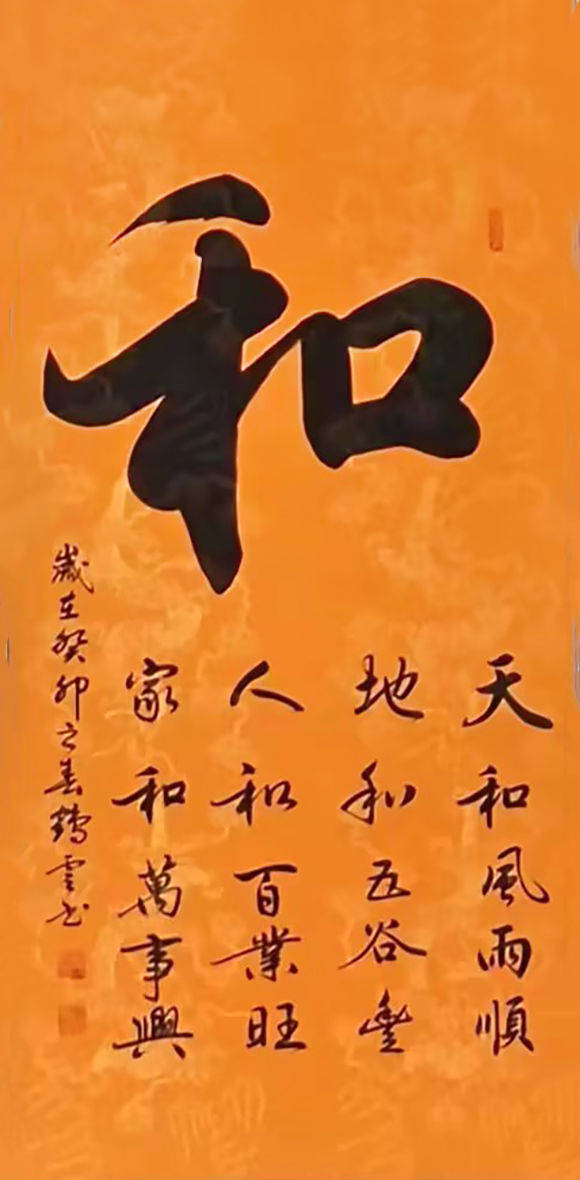 和
天和風雨順
地和五谷豐
人和百業旺
家和萬事興
歲在癸卯之春鶴雲書